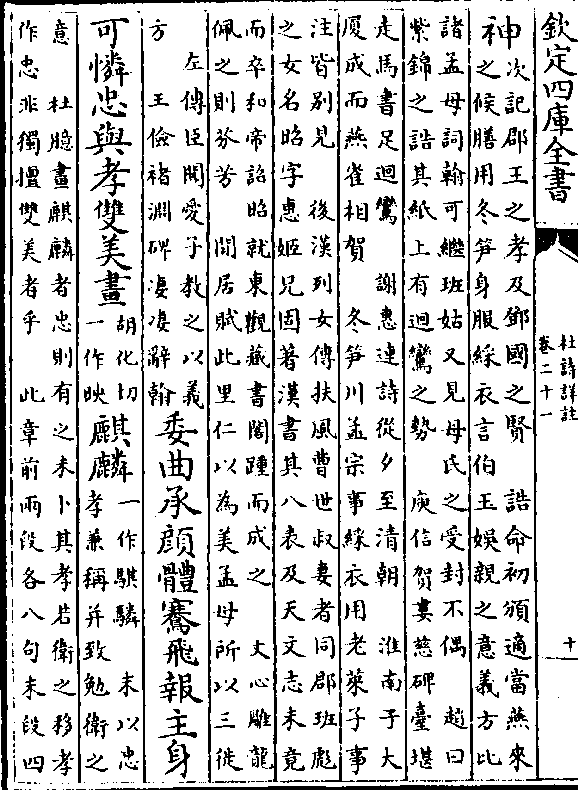 欽定四庫全書
杜詩詳註
卷二十一
十
神
次記郡王之孝及鄧國之賢　誥命初頒適當燕來
之候膳用冬笋身服綵衣言伯玉娛親之意義方比
諸孟母詞翰可繼班姑又見母氏之受封不偶　趙曰
紫錦之誥其紙上有迴鸞之勢　庾信賀婁慈碑臺堪
走馬書足迴鸞　謝惠連詩從夕至清朝　淮南子大
厦成而燕雀相賀　冬笋川孟宗事綵衣用老萊子事
注皆别見　後漢列女傳扶風曹世叔妻者同郡班彪
之女名昭字惠姬兄固著漢書其八表及天文志未竟
而卒和帝詔昭就東觀藏書閣踵而成之　文心雕龍
佩之則芬芳　閒居賦此里仁以為美孟母所以三徙
左傳臣聞愛子教之以義
方　王儉褚淵碑凄凄辭翰
委曲承顔體騫飛報主身
可憐忠與孝雙美畫
胡化切
一作映
麒麟
一作騏驎　末以忠
孝兼稱并致勉衛之
意　杜臆畫麒麟者忠則有之未卜其孝若衛之移孝
作忠非獨擅雙美者乎　此章前兩段各八句末段四